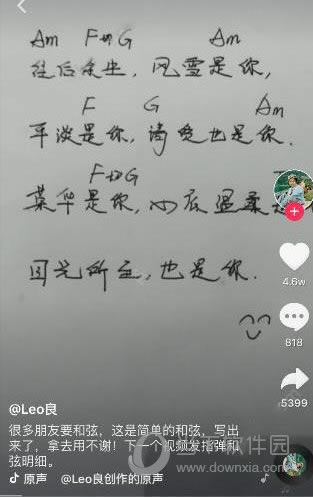 Am F→G Am
往后余生，风雪是你，
F G Am
平淡是你，清贫也是你.
F→G
荣华是你，心底温柔是
目光所至，也是你.
4.6w
818
5399
@Leo良
很多朋友要和弦，这是简单的和弦，写出
来了，拿去用不谢！下一个视频发指弹和
弦明细。
当下软件园
www.downxia.com
原声 @Leo良创作的原声